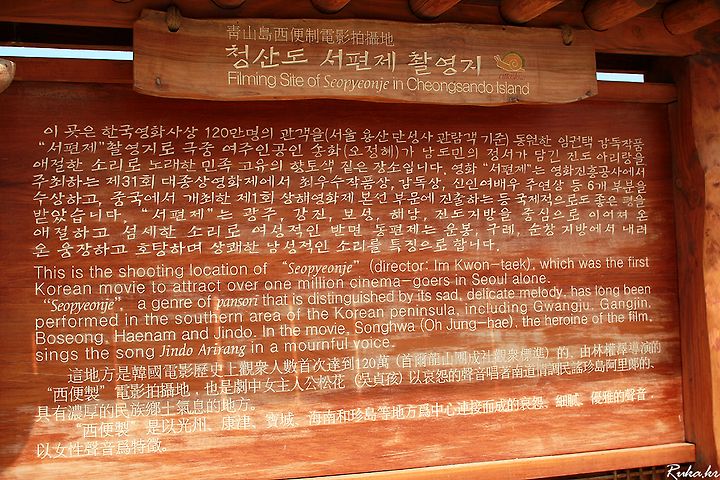 靑山島西便制電影拍攝地
청산도 서편제 촬영지
Filming Site of Seopyeonje in Cheongsando Island
이 곳은 한국영화사상 120만명의 관객을(서울 용산 단성사 관람객 기준) 동원한 임권택 감독작품
“서편제”촬영지로 극중 여주인공인 송화(오정해)가 남도민의 정서가 담긴 진도 아리랑을
애절한 소리로 노래한 민족 고유의 향토색 짙은 장소입니다. 영화 “서편제”는 영화진흥공사에서
주최하는 제31회 대종상영화제에서 최우수작품상, 감독상, 신인여배우 주연상 등 6개 부문을
수상하고, 중국에서 개최한 제1회 상해영화제 본선 부문에 진출하는 등 국제적으로도 좋은 평을
받았습니다. “서편제”는 광주, 강진, 보성, 해남, 진도지방을 중심으로 이어져 온
애절하고 섬세한 소리로 여성적인 반면 동편제는 운봉, 구례, 순창 지방에서 내려
온 웅장하고 호탕하며 상쾌한 남성적인 소리를 특징으로 합니다.
This is the shooting location of “Seopyeonje” (director: Im Kwon-taek), which was the first
Korean movie to attract over one million cinema-goers in Seoul alone.
“Seopyeonje”, a genre of pansori that is distinguished by its sad, delicate melody, has long been
performed in the southern area of the Korean peninsula, including Gwangju, Gangjin,
Boseong, Haenam and Jindo. In the movie, Songhwa (Oh Jung-hae), the heroine of the film,
sings the song Jindo Arirang in a mournful voice.
這地方是韓國電影歷史上觀衆人數首次達到120萬 (首都龍山團成社觀衆標準) 的, 由林權澤導演的
“西便製” 電影拍攝地, 也是劇中女主人公松花 (吴貞孩) 以哀怨的聲音唱著南道情調民謠珍島阿里郎的,
具有濃厚的民族鄉土氣息的地方。
“西便製” 是以光州、康津、寶城、海南和珍島等地方爲中心連接而成的哀怨、細膩、優雅的聲音,
以女性聲音爲特徵。
Ruka.kr